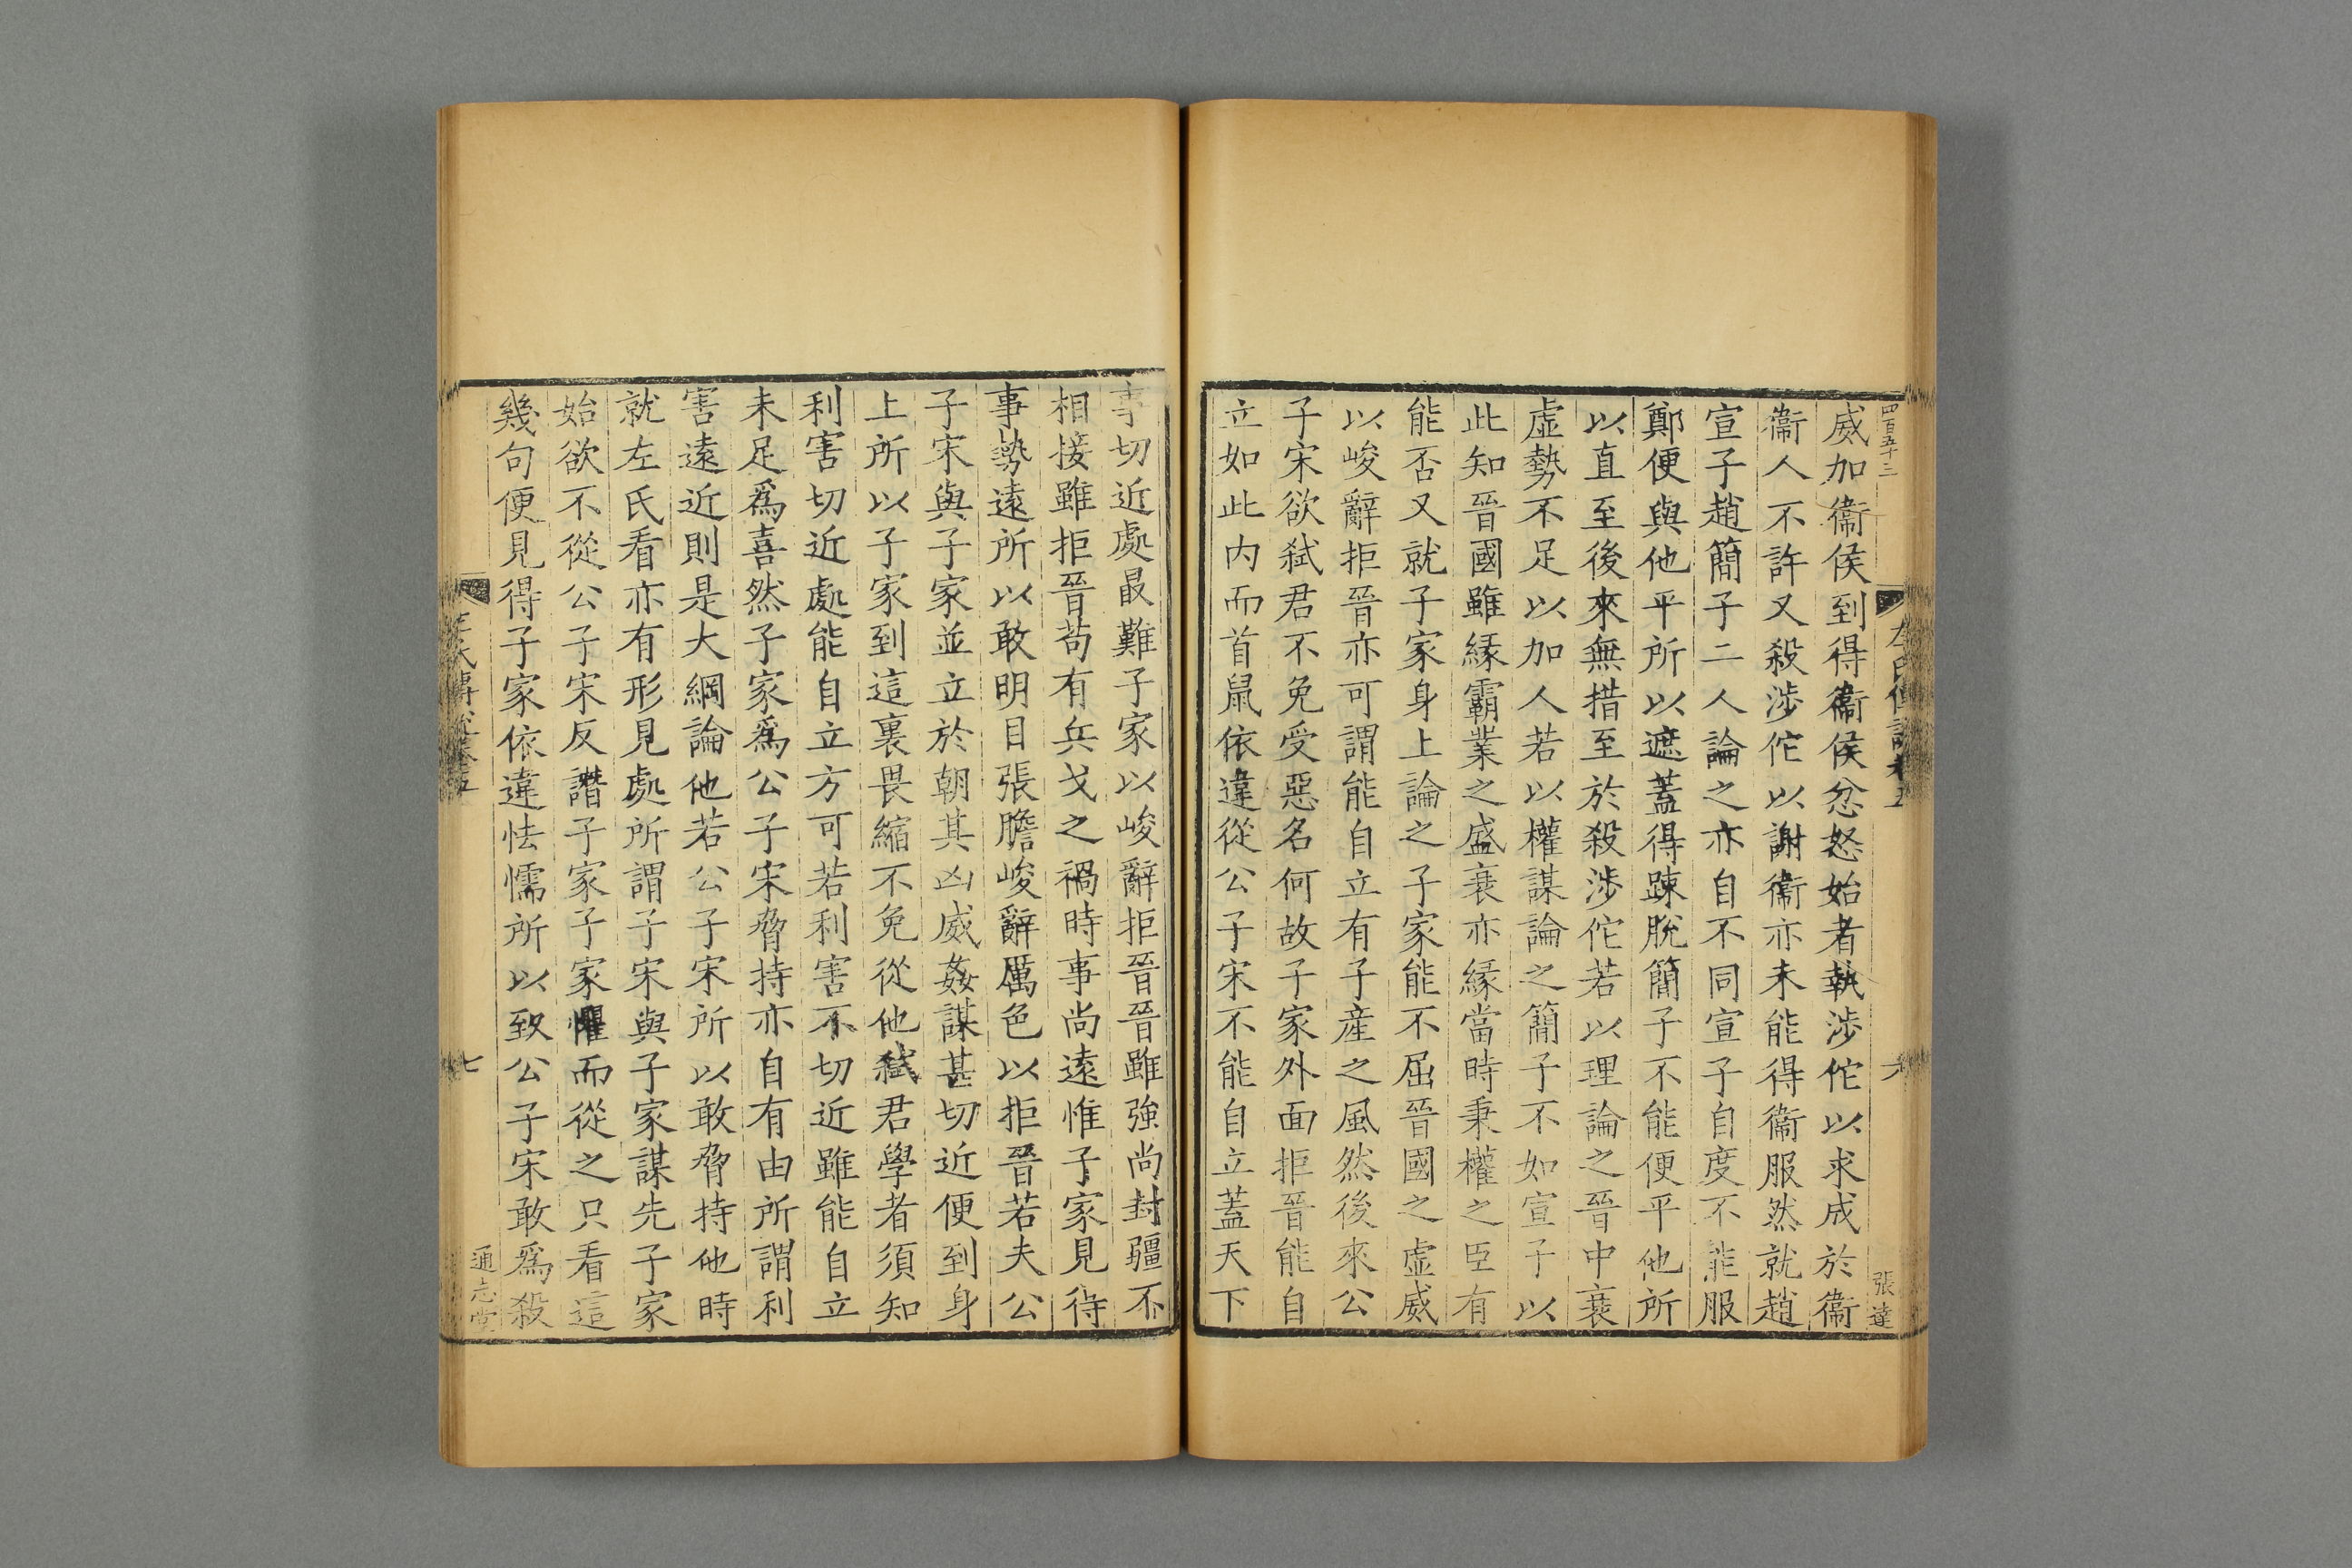 四百五十三
左氏傳說卷五
六
張達
威加衞侯到得衞侯忿怒始者執涉佗以求成於衞
衞人不許又殺涉佗以謝衞亦未能得衞服然就趙
宣子趙簡子二人論之亦自不同宣子自度不能服
鄭便與他平所以遮蓋得踈脫簡子不能便平他所
以直至後來無措至於殺涉佗若以理論之晉中衰
虛勢不足以加人若以權謀論之簡子不如宣子以
此知晉國雖緣霸業之盛衰亦緣當時秉權之臣有
能否又就子家身上論之子家能不屈晉國之虛威
以峻辭拒晉亦可謂能自立有子產之風然後來公
子宋欲弒君不免受惡名何故子家外面拒晉能自
立如此内而首鼠依違從公子宋不能自立蓋天下
事切近處最難子家以峻辭拒晉晉雖強尚封疆不
相接雖拒晉苟有兵戈之禍時事尚遠惟子家見得
事勢遠所以敢明目張膽峻辭厲色以拒晉若夫公
子宋與子家並立於朝其凶威姦謀甚切近便到身
上所以子家到這裏畏縮不免從他弒君學者須知
利害切近處能自立方可若利害不切近雖能自立
未足爲喜然子家爲公子宋脅持亦自有由所謂利
害遠近則是大綱論他若公子宋所以敢脅持他時
就左氏看亦有形見處所謂子宋與子家謀先子家
始欲不從公子宋反譖子家子家懼而從之只看這
幾句便見得子家依違怯懦所以致公子宋敢爲殺
左氏傳說卷五
七
通志堂